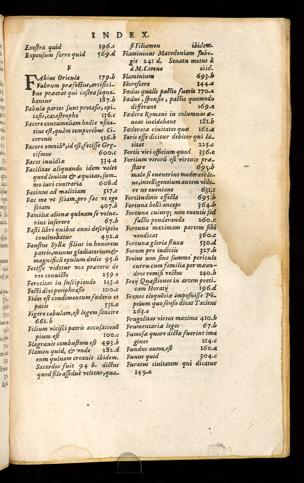 INDEX.
Exostra quid 196.c
Expensum ferre quid 569.d
F
Fabius Oricula 179.b
Fabrum præfectus, artifici-
bus præerat qui castra seque
bantur 187.b
Fabulæ partes sunt protasis, epi-
tasis, catastrophe 116.c
Facere consumendum
tius est, quàm temporibus Ci-
ceronis 516.b
Facere omnib. id est, facisse Gr
cismus 600.c
Facere inuidiæ 334.a
Facilitas aliquando idem valet
quod lenitas & æquitas, sum-
mo iuri contraria 608.d
Facinus ad militiam 317.c
Fac me ve sciam, pro fac ve ego
sciam 407.b
Familia aliena quidnam se volue-
rint inserere 67.b
Fasti libri quibus anni descriptio
continebatur 492.a
Faustus Syllæ filius in honorem
patris, munus gladiatorium
magnificũ epulum dedit 95.b
Fecisse videtur vox prætoris in
reo conuicto 259.c
Ferocitas in suscipiendo 143.d
Facti dies periphrasis 100.c
Fides est condimentum fœderis et
pacis 532.a
Figere tabulam, est legem sancire
661.b
Filium vicisci patris accusationē
pium est 100.c
Flagrauit combustum est 493.b
Flamen quid, & vnde 282.d
eum quinam creauit ibidem.
Sacerdos fuit 94.b. dictus
quod filo assidue veletur, qua-
si Filamen ibidem.
Flamininus Macedoniam subi-
git 241.d. Senatu motus à
à M. Catone ibid.
Flaminium 693.b
Florescere 144.a
Fœdus qualis pactio fuerit 170.a
Fœdus, sponsio, pactio quomodo
differant 169.a
Fœdera Romani in columnis æ-
neas incidebant 181.b
Fœderatæ ciuitates quæ 162.a
Foris esse dicitur debitor qui di-
tis 225.c
Fortis viri officium quod 336.a
Fortium virorũ est virtute præ-
stare 695.b
mala si euenerint moderatè fe-
re, intelligentium autem vide-
re ne eueniant 631.c
Fortitudinis effectu 695.b
Fortuna belli anceps 364.b
Fortuna cuiusq; non euentis sed
factis ponderanda 260.c
Fortuna maximam partem sibi
vendicat 360.c
Fortuna gloria fluxa 530.d
Forum pro iudiciis 327.b
Fratre non sine summo periculo
currus cum familia per mæan-
dros remisi rectus 240.b
Freij Quæstiones in artem poeti-
cam Horatij 196.d
Frenos eloquentiæ imposuisse Pō-
peium quo sensu dicat Tacitus
263.a
Frugalitas virtus maxima 410.b
Frumentariæ leges 67.b
Fumosæ quare dicta fuerint ima
gines 214.c
Fundus autor, est 160.a
Funus quid 304.c
Furatus ciuitatem qui dicatur
149.a